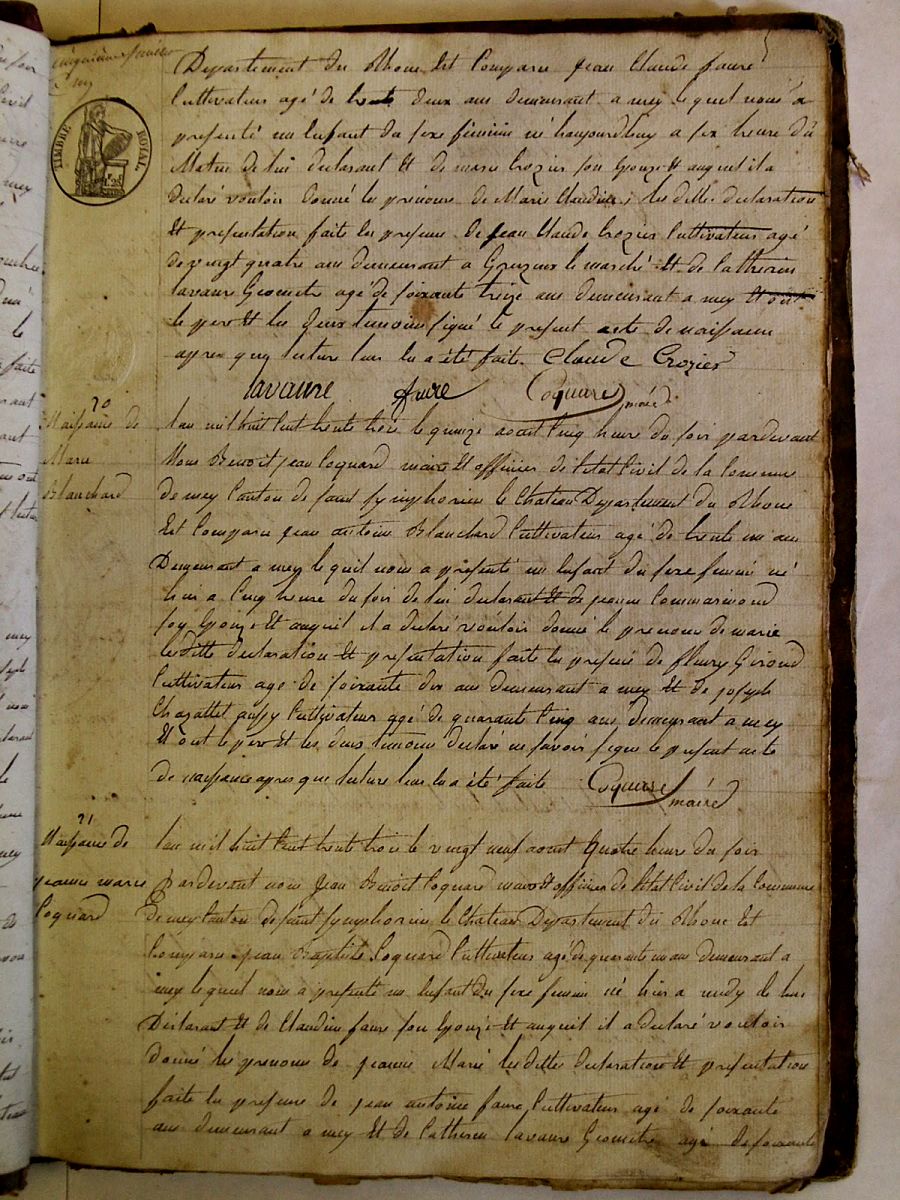 cinquième feuillet
5
TIMBRE ROYAL
Departement du Rhone Est Comparu jean Claude faure
Cultivateur agé de trente deux ans demeurant a mey le quel nous a
presenté un Enfant du sexe féminin né haujourdhuy a six heure du
Matin de lui declarant Et de marie Crozier son Epouze Et auquel il a
declaré vouloir donné les prénoms de Marie Claudine, les dittes declaration
Et presentation faite En presence de jean Claude Crozier Cultivateur agé
de vingt quatre ans demeurant a Grezieux le marché Et de Catherin
lavaure Geometre agé de soixante treize ans demeurant a mey Et ont
le pere Et les deux temoins signé le present acte de naissance
apres quy lecture leur En a été faite Claude Crozier
lavaure faure Coquard maire
20
Naissance de
Marie
Blanchard
Lan mil huit Cent trente trois le quinze aout Cinq heure du soir pardevant
Nous Benoit jean Coquard maire Et officier de létat Civil de la Commune
de mey Canton de saint symphorien le Chateau Departement du Rhone
Est Comparu jean antoine Blanchard Cultivateur agé de trente un ans
Demeurant a mey le quel nous a présenté un Enfant du sexe feminin né
hier a Cinq heure du soir de lui declarant Et de jeanne Commarmond
son Epouze Et auquel il a declaré vouloir donné le prenoms de marie
les ditte declaration Et presentation faite En presence de fleury Giroud
Cultivateur agé de soixante dix ans demeurant a mey Et de joseph
Chazallet aussy Cultivateur agé de quarante Cinq ans demeurant a mey
Et ont le pere Et les deux temoins declaré ne savoir signé le present acte
de naissance apres que lecture leur En a été faite Coquard maire
21
Naissance de
jeanne marie
Coquard
Lan mil huit Cent trente trois le vingt neuf aout Quatre heure du soir
Pardevant nous jean Benoit Coquard maire Et officier de létat Civil de la Commune
de mey Canton de saint symphorien le Chateau Departement du Rhone Est
Comparu jean Baptiste Coquard Cultivateur agé de quarante un ans demeurant a
mey le quel nous a presenté un Enfant du sexe feminin né hier a midy de lui
Declarant Et de Claudine faure son Epouze Et auquel il a declaré vouloir
donné les prenoms de jeanne Marie les dittes declaration Et presentation
faite En presence de jean antoine faure Cultivateur agé de soixante
ans demeurant a mey Et de Catherin lavaure Geometre agé de soixante